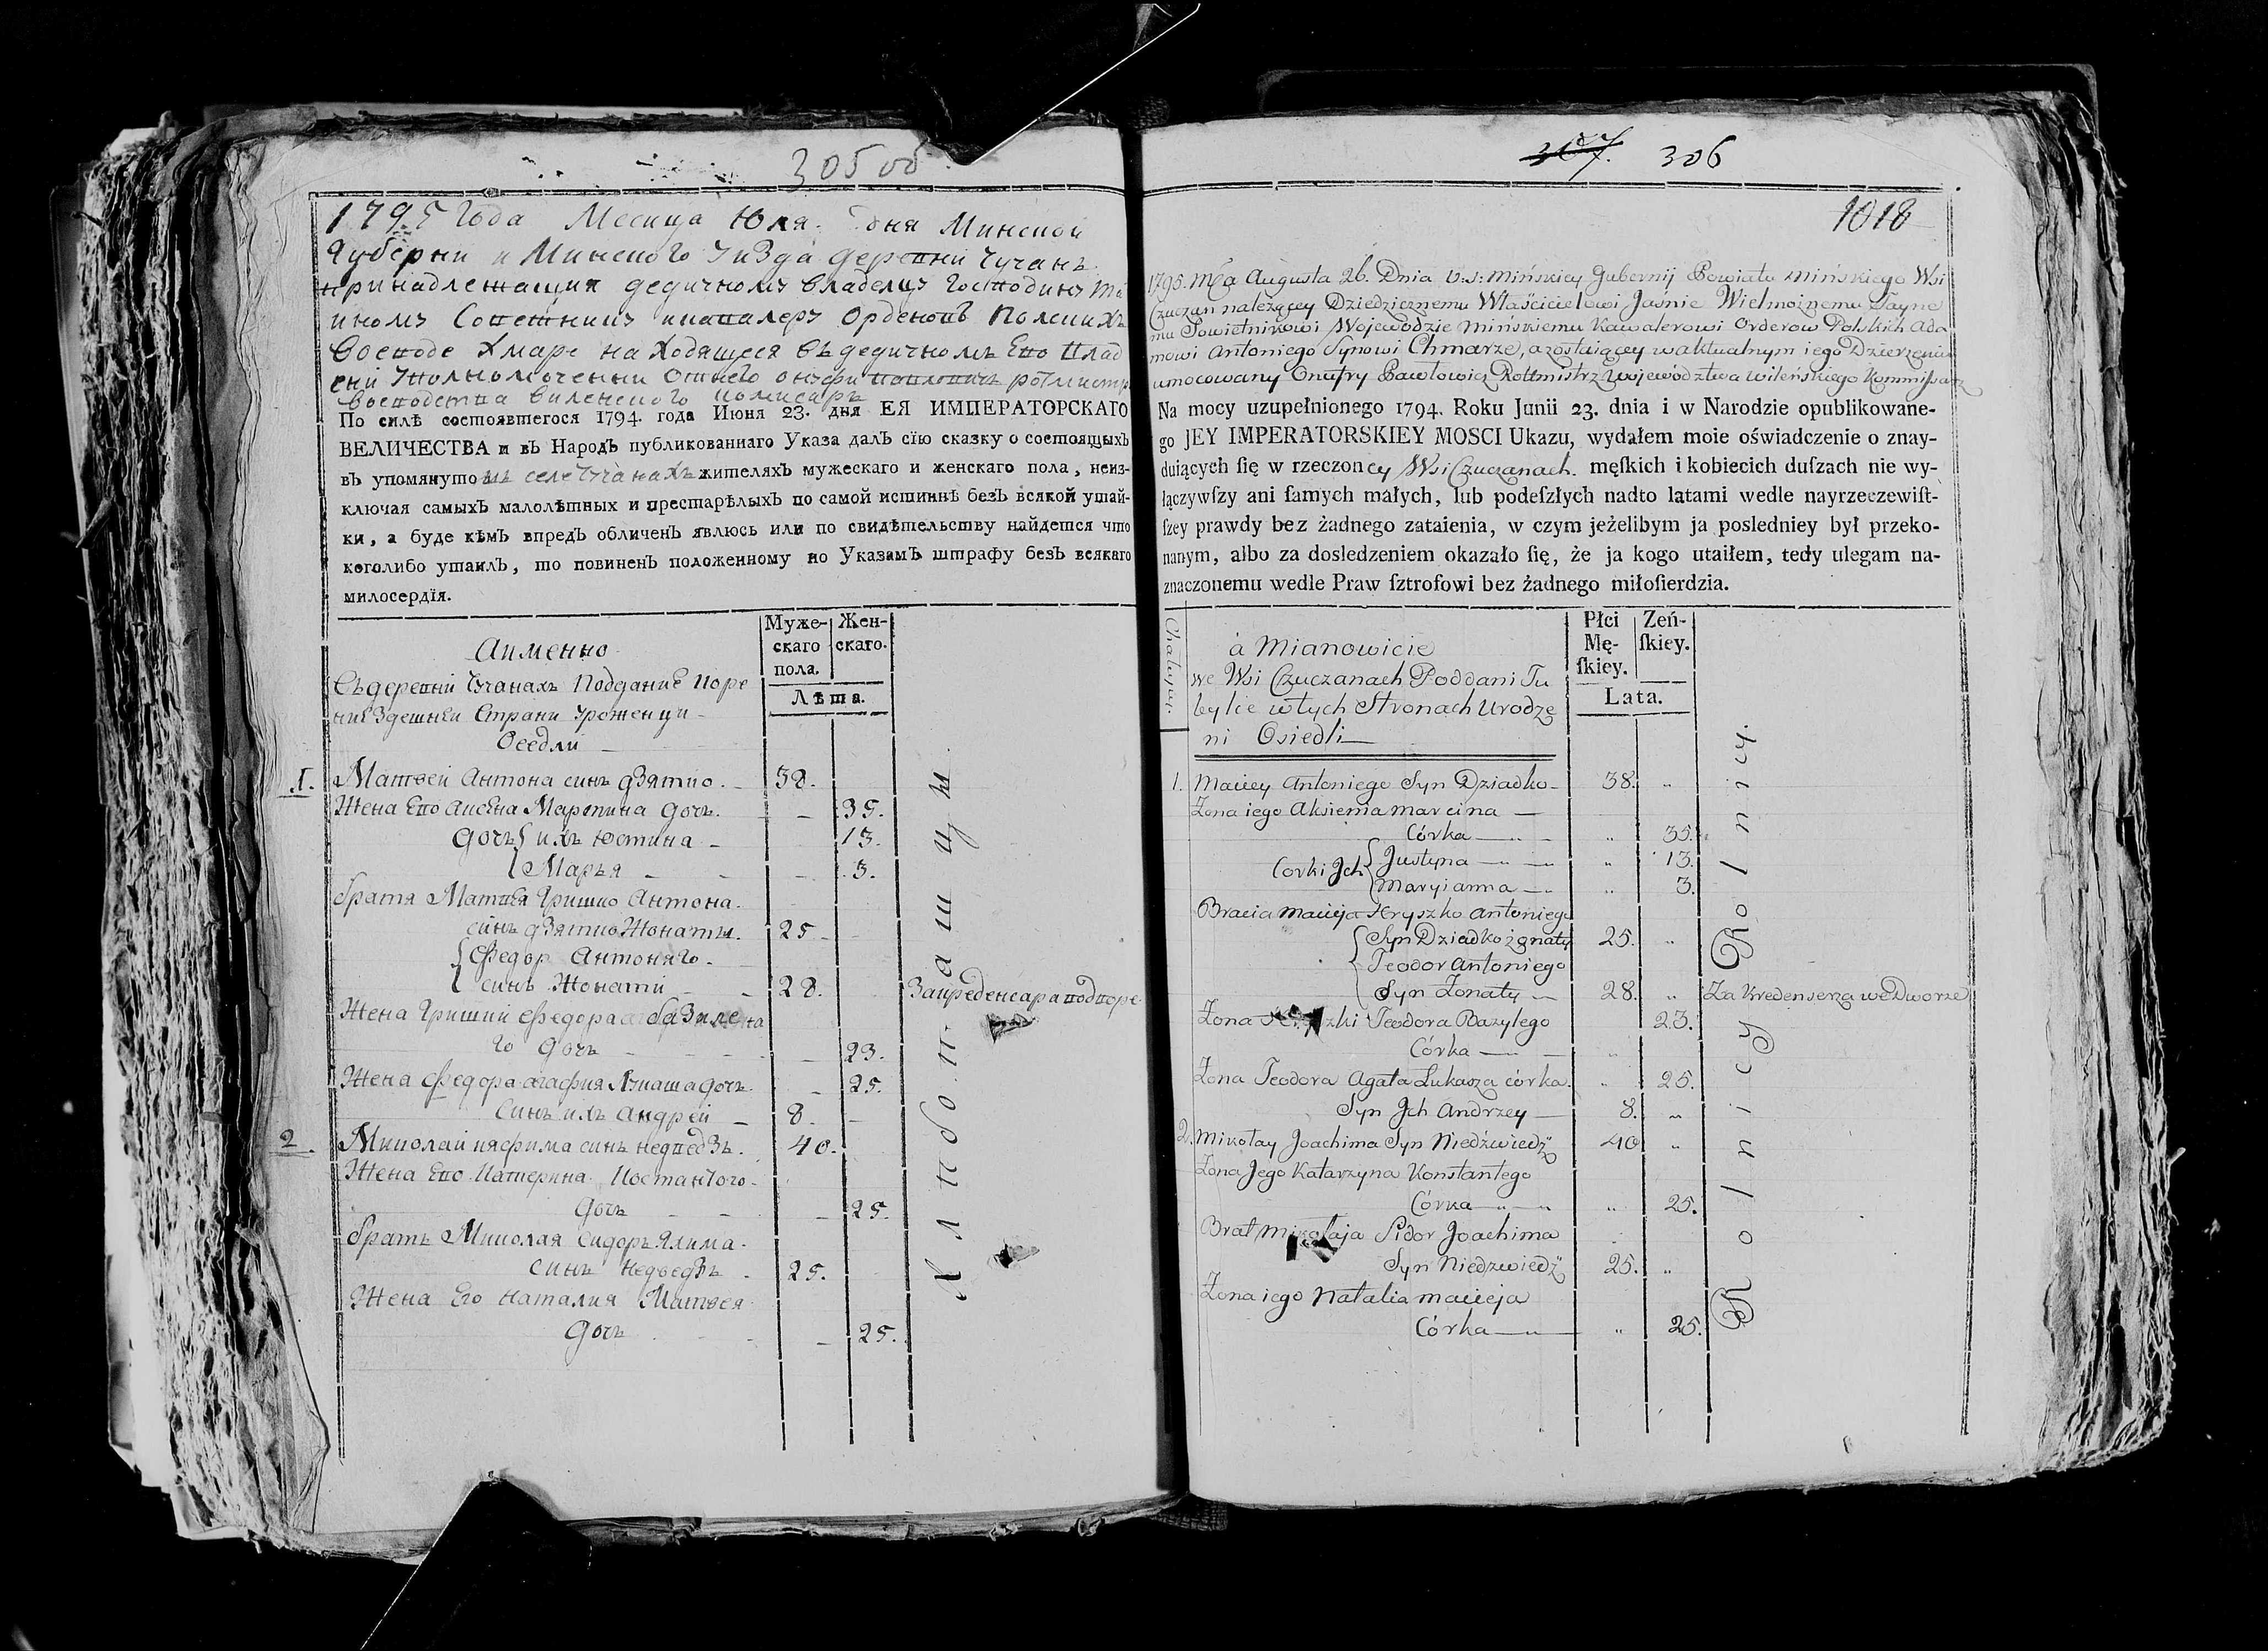 305 об
1795 Года Месяца Юля. дня Минской
Губерни и Минского Уизда деревни Чучанъ
принадлежащия дедичномъ владелцъ Господинъ Та
иномъ Советникъ икавалеръ Орденовъ Полскихъ
Воеводе Хмаре находящеся въ дедичномъ Его Влад
ени Уполномоченни Онъфри Павловичъ ротмистръ
Воеводства Виленского комисаръ
По силѣ состоявшегося 1794. года Июня 23. дня ЕЯ ИМПЕРАТОРСКАГО
ВЕЛИЧЕСТВА и въ Народъ публикованнаго Указа далъ сїю сказку о состоящыхъ
въ упомянутомъ селе Чучанахъ жителяхъ мужескаго и женскаго пола, неиз-
ключая самыхъ малолѣтныхъ и престарѣлыхъ по самой истиннѣ безъ всякой утай-
ки, а буде кѣмъ впредъ обличенъ явлюсь или по свидѣтельству найдется что
коголибо утаилъ, то повиненъ положенному по Указамъ штрафу безъ всякаго
милосердїя.
Аименно
Муже-
скаго
пола.
Жен-
скаго.
Лѣта.
Въ деревни Чучанахъ Поддание Коре
ние Здешней Страни Уроженци
Оседли
1. Матвей Антона синъ дзятко. 38.
Жена Его Аксена Марцина дочъ. 35.
дочъ ихъ Юстина 13.
Марья 3.
братя Матвея Гришко Антона
синъ дзятко Жонаты. 25
Федор Антоняго
синъ Жонатй 28. Закреденсара подворе
Жена Гришки Федора базиле
го дочъ 23.
Жена Федора агафия Лукаша дочъ 25.
Синъ ихъ Андрей 8.
2. Миколай иякима синъ недведзъ. 40.
Жена Его Катерина Костантого
дочъ 25.
братъ Миколая Сидоръ Якима
синъ недведзъ. 25.
Жена Его Наталия Матвея
дочъ 25.
307. 306
1018
1795. Mca Augusta 26. Dnia v.s: Mińskiey Gubernij Powiatu Mińskiego Wsi
Czuczan należącey Dziedzicznemu Właścicielowi Jaśnie Wielmożnemu Tayne
mu Sowietnikowi Wojewodzie Mińskiemu Kawalerowi Orderow Polskich Ada
mowi Antoniego Synowi Chmarze, a zostaiącey w aktualnym iego Dzierzeniu
umocowany Onufry Pawłowicz Rottmistrz Województwa Wileńskiego Kommissarz
Na mocy uzupełnionego 1794. Roku Junii 23. dnia i w Narodzie opublikowane-
go JEY IMPERATORSKIEY MOSCI Ukazu, wydałem moie oświadczenie o znay-
duiących ſię w rzeczoncy Wsi Czuczanach. męſkich i kobiecich duſzach nie wy-
łączywſzy ani ſamych małych, lub podeſzłych nadto latami wedle nayrzeczewiſt-
ſzey prawdy bez żadnego zataienia, w czym jeżelibym ja posledniey był przeko-
nanym, albo za dosledzeniem okazało ſię, że ja kogo utaiłem, tedy ulegam na-
znaczonemu wedle Praw ſztrofowi bez żadnego miłoſierdzia.
Chałupy.
à Mianowicie
Płci
Mę-
ſkiey.
Zeń-
ſkiey.
Lata.
we Wsi Czuczanach Poddani Tu
bylce w tych Stronach Urodze
ni Osiedli
1. Maciey Antoniego Syn Dziadko 38. "
Żona iego Aksienia Marcina
Córka " 35.
Corki Jch Justyna " 13.
Maryianna " 3.
Bracia Macieja Hryszko Antoniego
Syn Dziadko żonaty 25. "
Teodor Antoniego
Syn Żonaty 28. " Za Kredenserza we Dworze
Żona Teodora Bazylego 23.
Córka "
Żona Teodora Agata Lukasza córka. " 25.
Syn Jch Andrzey 8. "
2. Mikołay Joachima Syn Niedźwiedź 40 "
Żona Jego Katarzyna Konstantego
Córka " 25.
Brat Mikołaja Sidor Joachima
Syn Niedzwiedź 25. "
Żona iego Natalia Macieja
Córka " 25.
Rolnicy Rolnicy.